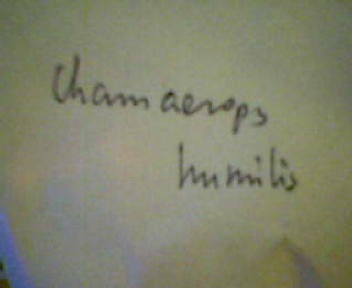 Chamaerops
humilis